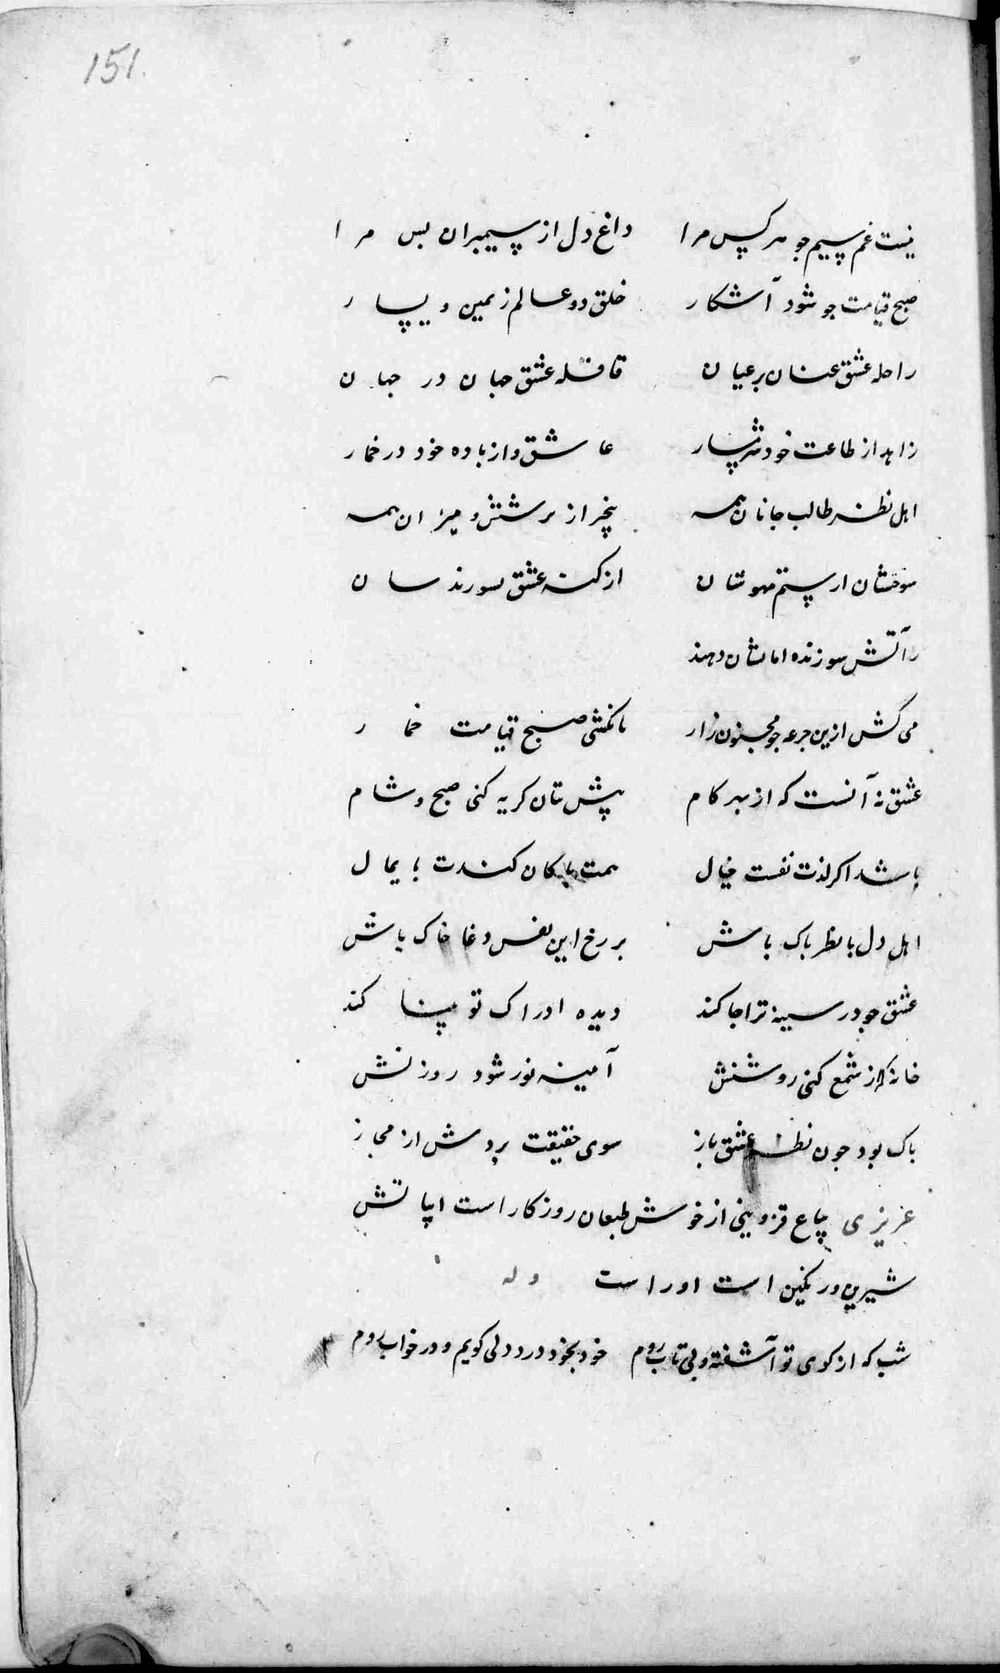 151.
نیست غم سیم جو هر کس مرا داغ دل از سیمبران بس مرا
صبح قیامت جو شود آشکار خلق دو عالم ز یمین و یسار
راحله عشق عنان بر عیان قافله عشق جهان در جهان
زاهد از طاعت خود شرمسار عاشق و از باده خود در خمار
اهل نظر طالب جانان همه بیخبر از پرشش و میزان همه
سوختشان از ستم مهوشان از کنه عشق بسوزند سان
ز آتش سوزنده امانشان دهند
می کش ازین جرعه جو مجنون زار تا نکشی صبح قیامت خمار
عشق نه آنست که از بهر کام پیش بتان کریه کنی صبح و شام
باشد اکر لذت نفست خیال همت پاکان کندت پایمال
اهل دل با نظر پاک باش بر رخ این نفس دغا خاک باش
عشق جو در سینه ترا جا کند دیده ادراک تو بینا کند
خانه که از شمع کنی روشنش آمینه نور شود روزنش
پاک بود جون نظر عشق باز سوی حقیقت بردش از مجاز
عزیزی قزوینی از خوش طبعان روزکار است ابیاتش
شیرین و رنکین است او راست وله
شب که از کوی تو آشفته و بی تاب روم خود بخود درد دلی کویم و در خواب روم